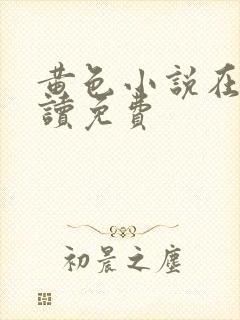 黄色小說在
讀免費
初晨之塵